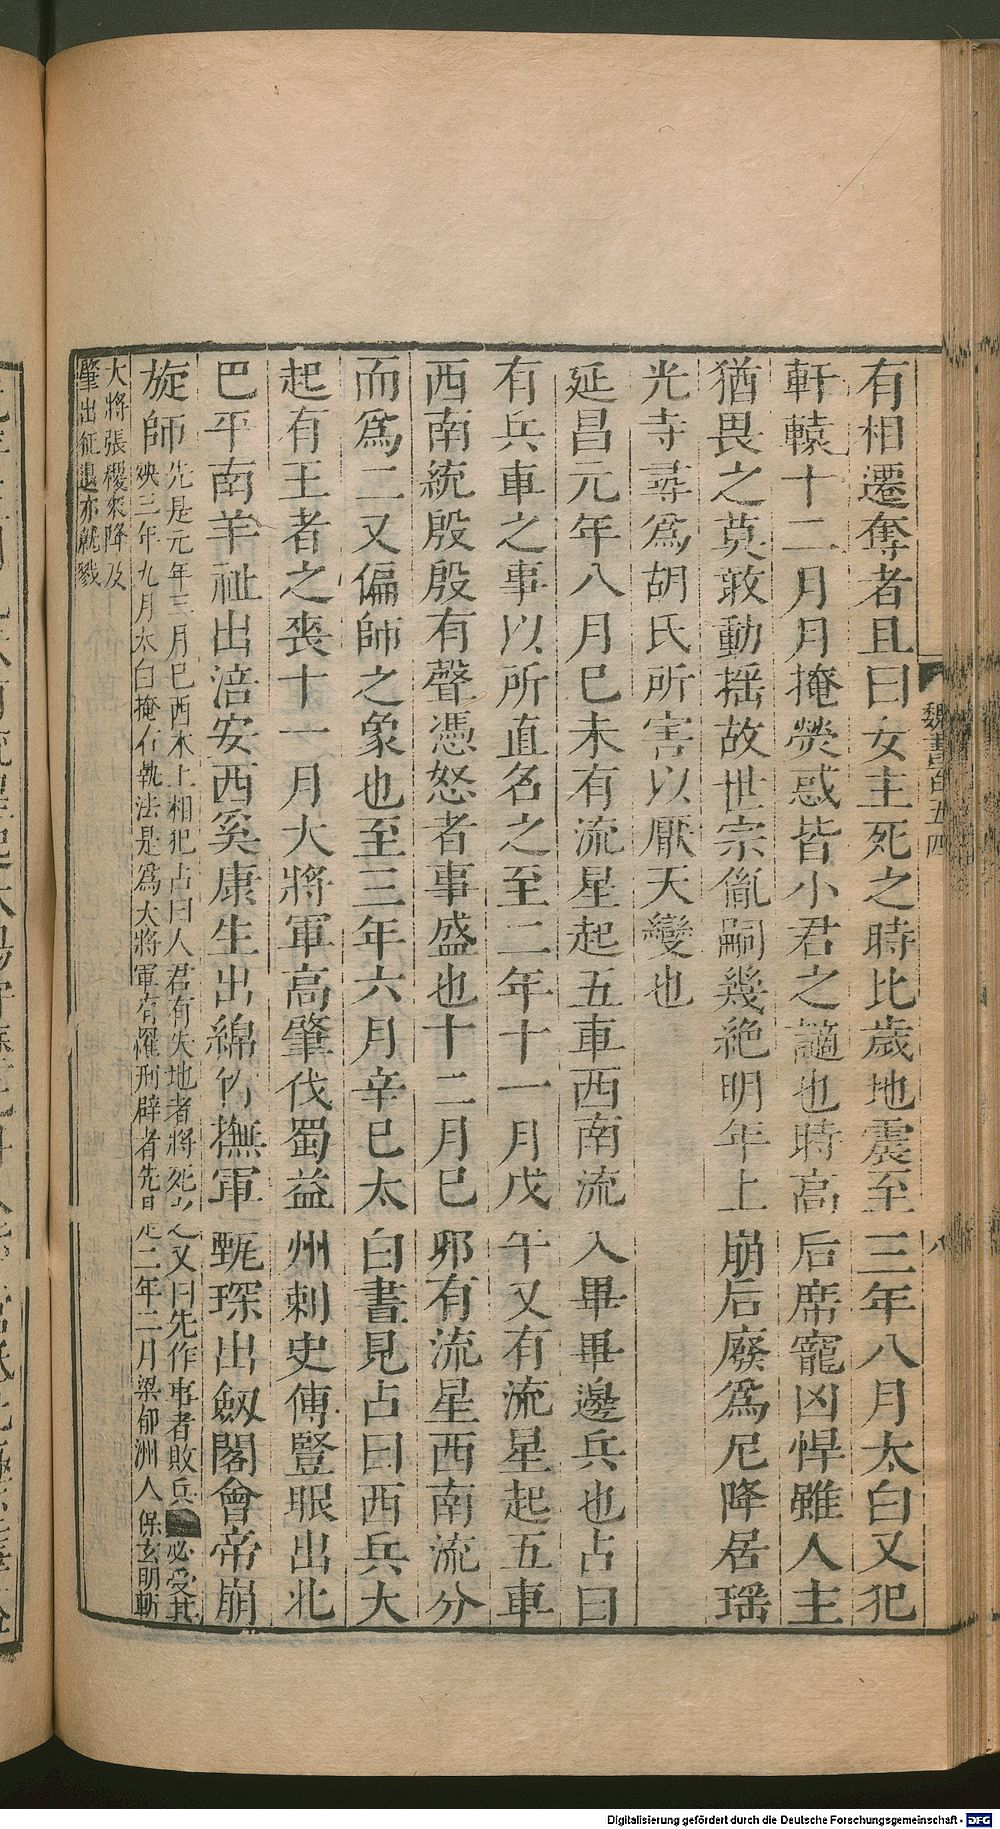 有相遷奪者且曰女主死之時比歲地震至三年八月太白又犯
軒轅十二月月掩熒惑皆小君之讁也時高后席寵凶悍雖人主
猶畏之莫敢動揺故世宗胤嗣幾絶明年上崩后廢爲尼降居瑶
光寺尋爲胡氏所害以厭天變也
延昌元年八月巳未有流星起五車西南流入畢畢邊兵也占曰
有兵車之事以所直名之至二年十一月戊午又有流星起五車
西南統殷殷有聲憑怒者事盛也十二月巳夘有流星西南流分
而爲二又偏師之象也至三年六月辛巳太白晝見占曰西兵大
起有王者之喪十一月大將軍高肇伐蜀益州刺史傅豎眼出北
巴平南羊祉出涪安西奚康生出綿竹撫軍甄琛出劔閣會帝崩
旋師
先是元年三月巳酉木上相犯占曰人君有失地者將死又曰先作事者敗兵必受其
殃三年九月太白掩右執法是爲大將軍有罹刑辟者先是二年二月梁郁洲人徐玄明斬
大將張稷來降及
肇出征還亦就戮
魏書百五四
八
Digitalisierung gefördert durch die Deutsche Forschungsgemeinschaft - DFG